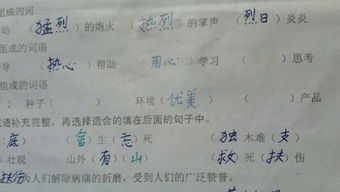 组成的词语
动 （猛烈）的炮火 （热烈）的掌声 （烈日）炎炎
组成的词语
导 （热心）帮助 （用心）学习 （ ）思考
组成的词
） 种子（ 环境（优美） ）产品
语补充完整，再选择适合的填在后面的句子中。
（底） （舍）生（忘）死 （独）木难（支）
）壮观 山外（有）（山） （救）死（扶）伤
扶伤为人们解除病痛的折磨，受到人们的广泛赞誉。